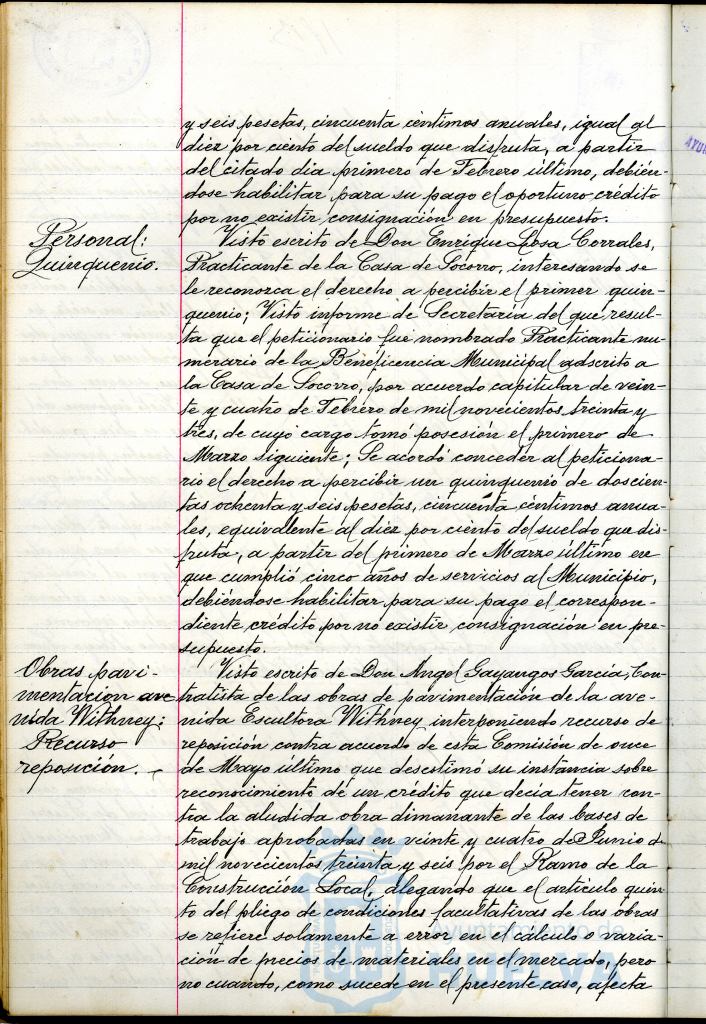 y seis pesetas, cincuenta céntimos anuales, igual al
diez por ciento del sueldo que disfruta, a partir
del citado dia primero de Febrero último, debién-
dose habilitar para su pago el oportuno crédito
por no existir consignación en presupuesto.
Personal:
Quinquenio.
Visto escrito de Don Enrique Losa Corrales,
Practicante de la Casa de Socorro, interesando se
le reconozca el derecho a percibir el primer quin-
quenio; Visto informe de Secretaría del que resul-
ta que el peticionario fue nombrado Practicante nu-
merario de la Beneficencia Municipal adscrito a
la Casa de Socorro, por acuerdo capitular de vein-
te y cuatro de Febrero de mil novecientos treinta y
tres, de cuyo cargo tomó posesión el primero de
Marzo siguiente; Se acordó conceder al peticiona-
rio el derecho a percibir un quinquenio de doscien-
tas ochenta y seis pesetas, cincuenta céntimos anua-
les, equivalente al diez por ciento del sueldo que dis-
fruta, a partir del primero de Marzo último en
que cumplió cinco años de servicios al Municipio,
debiéndose habilitar para su pago el correspon-
diente crédito por no existir consignación en pre-
supuesto.
Obras pavi-
mentación ave-
nida Withney:
Recurso
reposición.
Visto escrito de Don Angel Gayangos García, Con-
tratista de las obras de pavimentación de la ave-
nida Escultora Withney interponiendo recurso de
reposición contra acuerdo de esta Comisión de once
de Mayo último que desestimó su instancia sobre
reconocimiento de un crédito que decía tener con-
tra la aludida obra dimanante de las bases de
trabajo aprobadas en veinte y cuatro de Junio de
mil novecientos treinta y seis por el Ramo de la
Construcción Local, alegando que el artículo quin-
to del pliego de condiciones facultativas de las obras
se refiere solamente a error en el cálculo o varia-
ción de precios de materiales en el mercado, pero
no cuando, como sucede en el presente caso, afecta
Ayuntamiento de
HUELVA